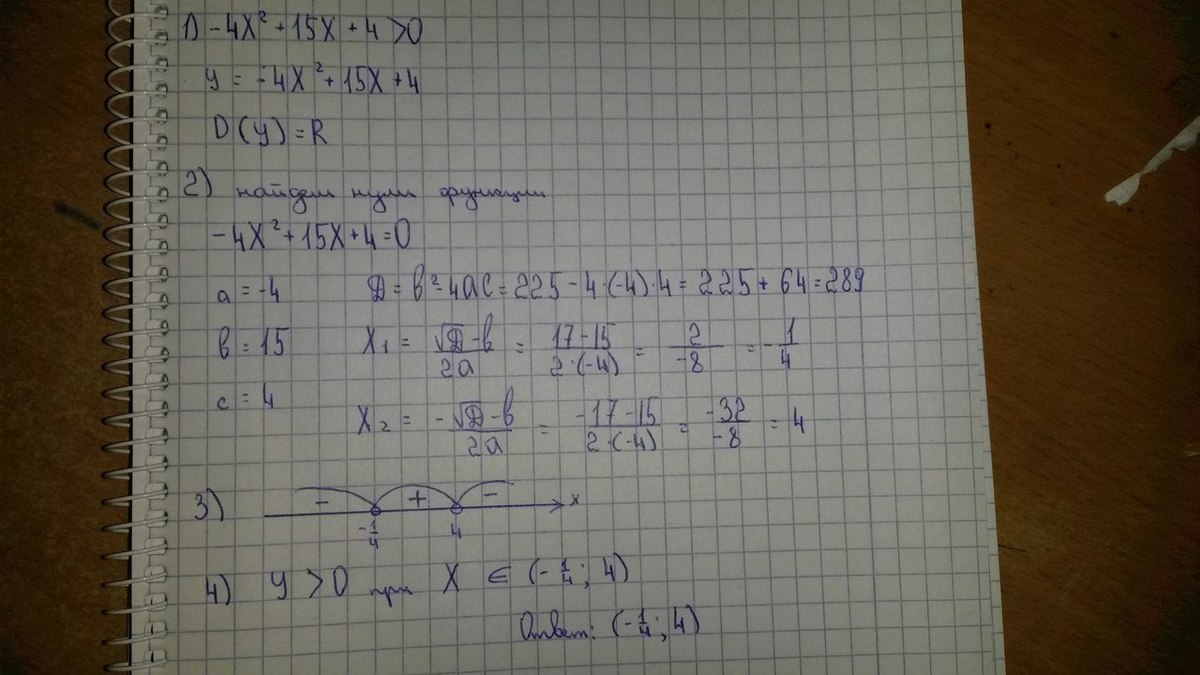 1) -4x² + 15x + 4 > 0
y = -4x² + 15x + 4
D(y) = R
2) найдем нули функции
-4x² + 15x + 4 = 0
a = -4 D = b² - 4ac = 225 - 4·(-4)·4 = 225 + 64 = 289
b = 15 x₁ = (√D - b)/(2a) = (17 - 15)/(2·(-4)) = 2/(-8) = -1/4
c = 4
x₂ = (-√D - b)/(2a) = (-17 - 15)/(2·(-4)) = (-32)/(-8) = 4
3) - + - x
-1/4 4
4) y > 0 при x ∈ (-1/4; 4)
Ответ: (-1/4; 4)